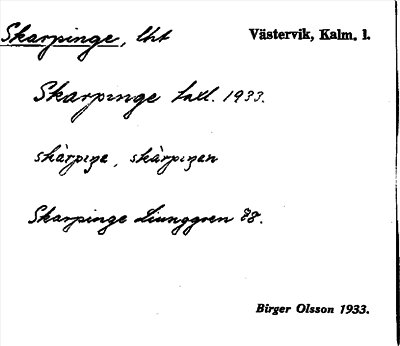 Skarpinge, lht Västervik, Kalm. l.
Skarpinge taxl. 1933.
skàrpɩŋe, skàrpɩŋen
Skarpinge Ljunggren 88.
Birger Olsson 1933.